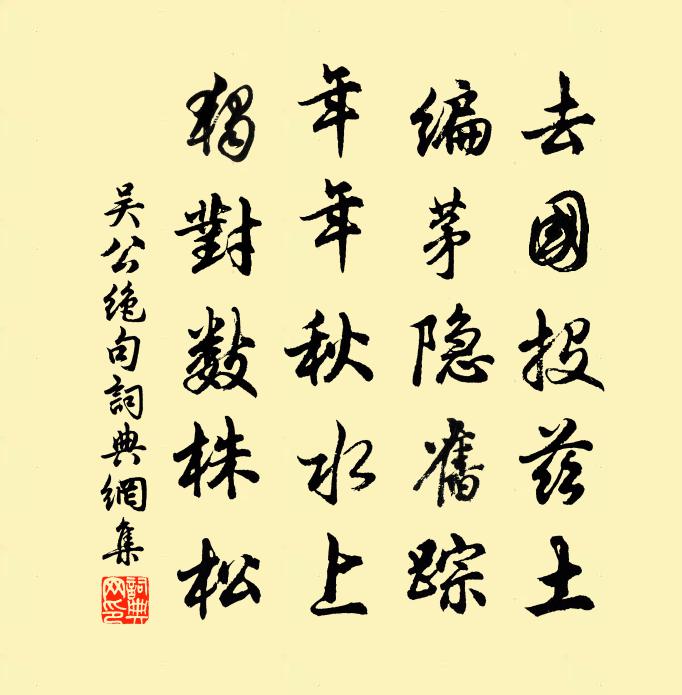 去國投茲土
编茅隐舊踪
年年秋水上
獨對數株松
吴公绝句詞典網集
詞典网印